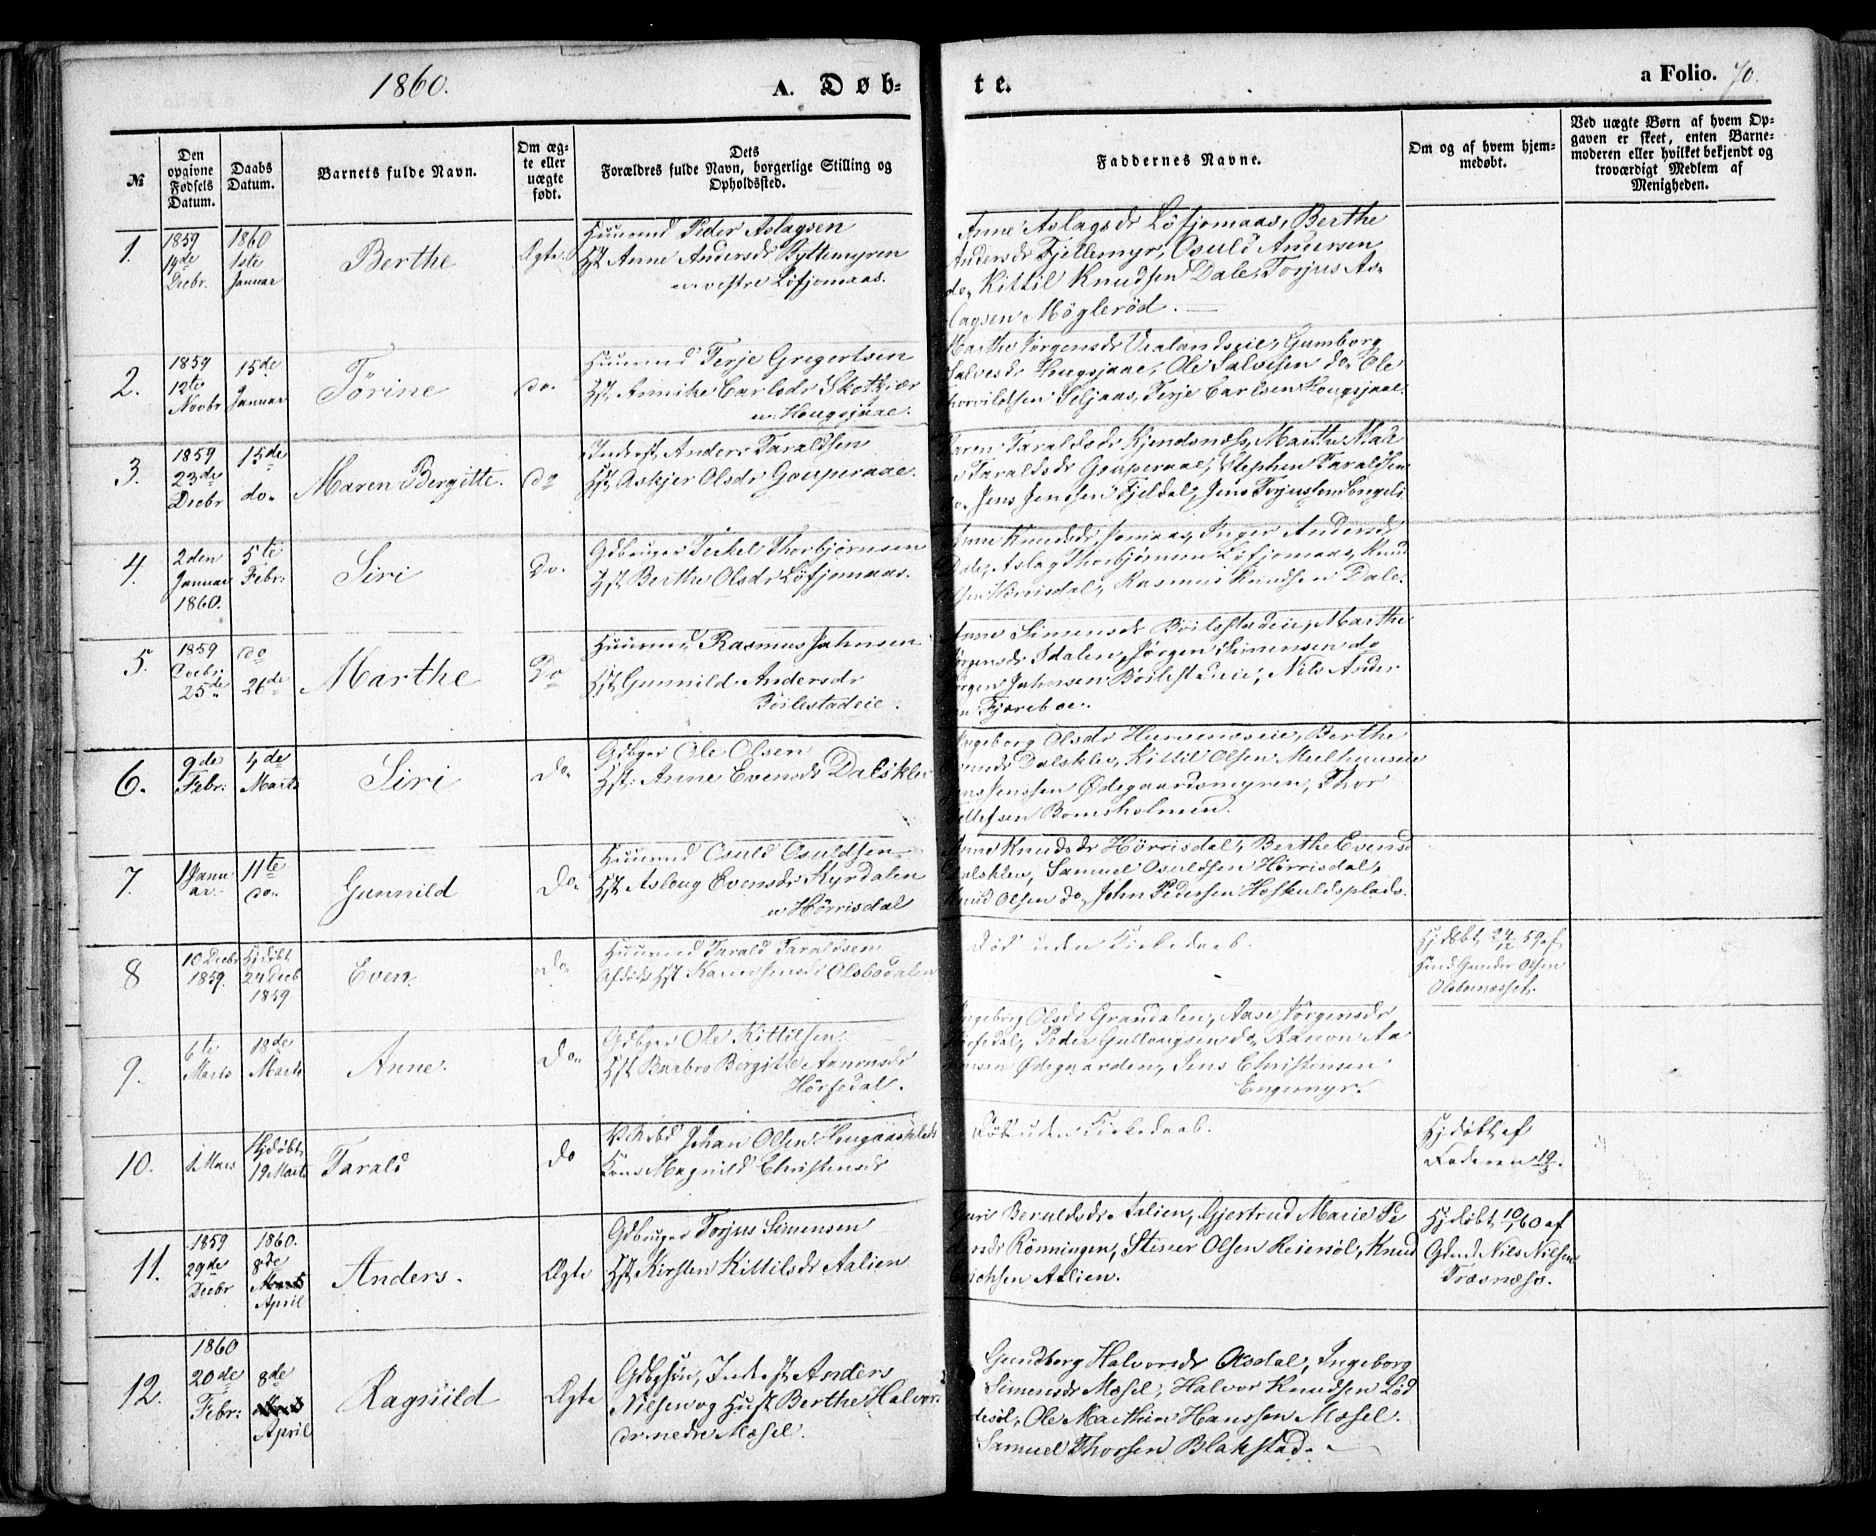 1860.
A. Døb-
te.
a Folio. 70.
№
Den opgivne Fødsels Datum.
Daabs Datum.
Barnets fulde Navn.
Om ægte eller uægte født.
Dets
Forældres fulde Navn, borgerlige Stilling og
Opholdssted.
Faddernes Navne.
Om og af hvem hjemmedøbt.
Ved uægte Børn af hvem Opgaven er skeet, enten Barnemoderen eller hvilket bekjendt og troværdigt Medlem af Menigheden.
1.
1859
Decbr.
1860
1ste
Januar
Berthe
Ægte
Huusmd Peder Aslagsen
Hst Anne Andersdr
vestre Løfjomaas.
Anne Aslagsdr Løfjomaas, Berthe
Andersdr Fjellemyr, Osuld Andersen
do, Kittil Knudsen Dale, Torjus As-
lagsen Møglerød.
2.
1859
12te
Novbr
15de
Januar
Tørine
do.
Huusmd Terje Gregertsen
Hst Annike Carlsdr
Hougsjaae.
Marthe Jørgensdr Ualandseie, Gumborg
Salvesdr Hougsjaae, Ole Salvesen do. Ole
Seljaas, Terje Carlsen Hougsjaae.
3.
1859
23de
Decbr
15de
do.
Maren Bergitte.
do
Inderst, Anders Taraldsen
Hst Askjer Olsdr Gouperaae.
Karen Taraldsdr Kjendsnæss, Marthe
Taraldsdr Gouperaae, Stephen Taraldsen
do. Jens Jensen Fjeldal, Jens Torjussen
4.
2den
Januar
1860.
5te
Febr:
Siri
Do.
Gdbruger Terkel Thorbjørnsen
Hst Berthe Olsdr Løfjomaas.
Anne Knudsdr Inger Andersdr
Dale, Aslag Thorbjørnsen Løfjomaas, Knud
Olsen Hørrisdal, Rasmus Knudsen Dale.
5.
1859
Decbr
25de
do
26de
Marthe
Do
Huusmd, Rasmus Jahnsen
Hst Gunnild Andersdr
Bøilestadeie.
Anne Simensdr Bøilestadeie, Marthe
Jørgensdr Idalen, Jørgen Simensen do
Jørgen Jahnsen Bøilestadeie, Nils Ander
sen Fjæreboe.
6.
9de
Febr:
4de
Marts
Siri
Do.
Gdbger Ole Olsen
Hst: Anne Evensdr Dalsklev
Ingeborg Olsdr Berthe
Evensdr Dalsklev, Kittil Olsen
Jenssen Ødegaardsmyren, Thor
7.
1 Janu
ar.
11te
do.
Gunnild
Do.
Huusmd Osuld Osuldsen
Hst Aslaug Evensdr Kyrdalen
Hørrisdal
Anne Knudsdr Hørrisdal, Berthe Evensdr
Dalsklev, Samuel Osuldsen Hørrisdal,
Knud Olsen do, John Pedersen Høskuldsplads.
8
10 Decbr
1859.
Hjdøbt
24 Decb
1859
Even.
Do.
Huusmd Tarald Taraldsen
Hst Olsbodalen
Død uden Kirkedaab.
Hjdøbt 24/12 59 af
Gunder Olsen
9.
6te
Marts
18de
Marts
Anne.
Do.
Gdbger Ole Kittilsen
Hst Barbro Bergithe Aanonsdr
Hørsedal.
Ingeborg Olsdr Grandalen, Aase Jørgensdr
Hørsedal, Peder Gullougsen do. Aanon Aa
nonsen Ødegaarden, Jens Christensen
Engemyr.
10.
1 Mars
Hjdøbt
19 Marts
Tarald
Do
Johan Olsen
Kone Magnild Christensdr
Død uden Kirkedaab.
Hjdøbt af
Faderen 19/3.
11.
1859
29de
Decbr
1860.
8de
April
Anders.
Ægte
Gdbruger Torjus Simensen
Hst Kirsten Kittilsdr Aalien
Guri Beruldsdr Aalien, Gjertrud Marie Pe
dersdr Rønningen, Stener Olsen Heiersøl, Knud
Erichsen Aalien.
Hjdøbt 10/1 60 af
Gdmd Nils Nilsen
Træsnæss.
12.
1860
20de
Febr:
8de
April
Ragnild
Ægte
Inderst Anders
Nilsen og Hust Berthe Halvors
dr nedre Mæsel.
Gundborg Halvorsdr Oxsdal, Ingeborg
Simensdr Mæsel, Halvor Knudsen Lød
desøl, Ole Mathiu Hanssen Mæsel.
Samuel Thorsen Blakstad.